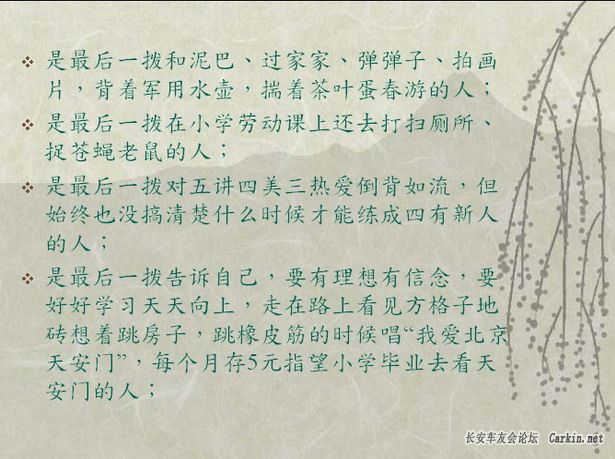 ❖ 是最后一拨和泥巴、过家家、弹弹子、拍画
片，背着军用水壶，揣着茶叶蛋春游的人；
❖ 是最后一拨在小学劳动课上还去打扫厕所、
捉苍蝇老鼠的人；
❖ 是最后一拨对五讲四美三热爱倒背如流，但
始终也没搞清楚什么时候才能练成四有新人
的人；
❖ 是最后一拨告诉自己，要有理想有信念，要
好好学习天天向上，走在路上看见方格子地
砖想着跳房子，跳橡皮筋的时候唱“我爱北京
天安门”，每个月存5元指望小学毕业去看天
安门的人；
长安车友会论坛 Carkin.net